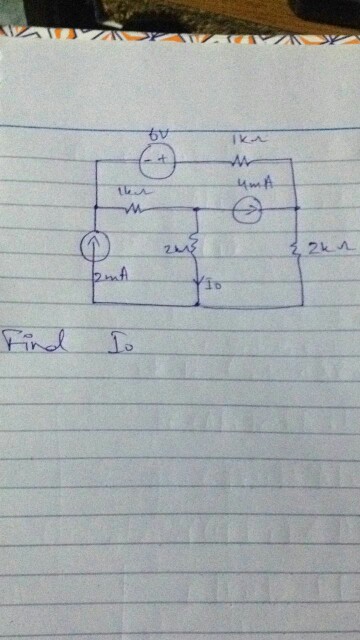 6V
1kΩ
- +
1kΩ
4mA
2kΩ
2kΩ
2mA
Io
Find Io